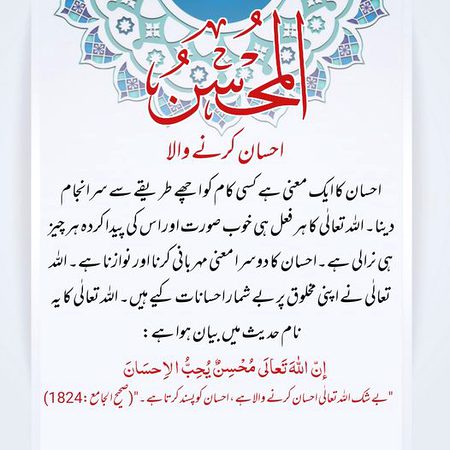 المُحسِنُ
احسان کرنے والا
احسان کا ایک معنی ہے کسی کام کو اچھے طریقے سے سرانجام
دینا۔ اللہ تعالٰی کا ہر فعل ہی خوب صورت اور اس کی پیدا کردہ ہر چیز
ہی نرالی ہے۔ احسان کا دوسرا معنی مہربانی کرنا اور نوازنا ہے۔ اللہ
تعالٰی نے اپنی مخلوق پر بے شمار احسانات کیے ہیں۔ اللہ تعالٰی کا یہ
نام حدیث میں بیان ہوا ہے:
إِنّ اللهَ تَعَالَى مُحْسِنٌ يُحِبُّ الإحسَانَ
"بے شک اللہ تعالٰی احسان کرنے والا ہے، احسان کو پسند کرتا ہے۔" (صحیح الجامع: 1824)